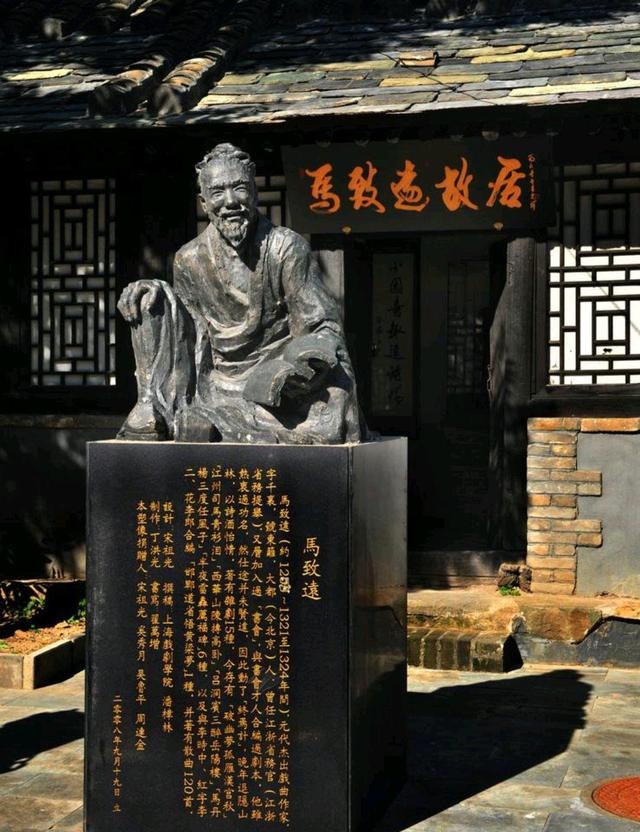 馬致遠故居
馬致遠
馬致遠(約125 -1321至1324年間)元代杰出戲曲作家,
字千裏,號東籬,大都(今北京)人,曾任江浙省務官(江浙
省務提舉)又曾加入過「書會」,與書會才人合編過劇本,他雖
熱衷過功名,然仕途并未賢達,因此動了「終焉計」,晚年退隱山
林,以詩酒怡情。著有雜劇15種,今存有「破幽夢孤雁漢宮秋」
「江州司馬青衫泪」「西華山陳摶高卧」「吕洞賓三醉岳陽樓」「馬丹
楊三度任風子」「半夜雷轟薦福碑」6種,以及與李時中、紅字李
二、花李郎合編「邯鄲道省悟黄粱夢」1種,并著有散曲120首。
設計:宋祖光 撰稿:上海戲劇學院 潘樟林
制作:丁洪光 書寫:翟萬增
本塑像捐贈人:宋祖光 吴秀月 吴 平 周連金
二零零八年九月十九日 立